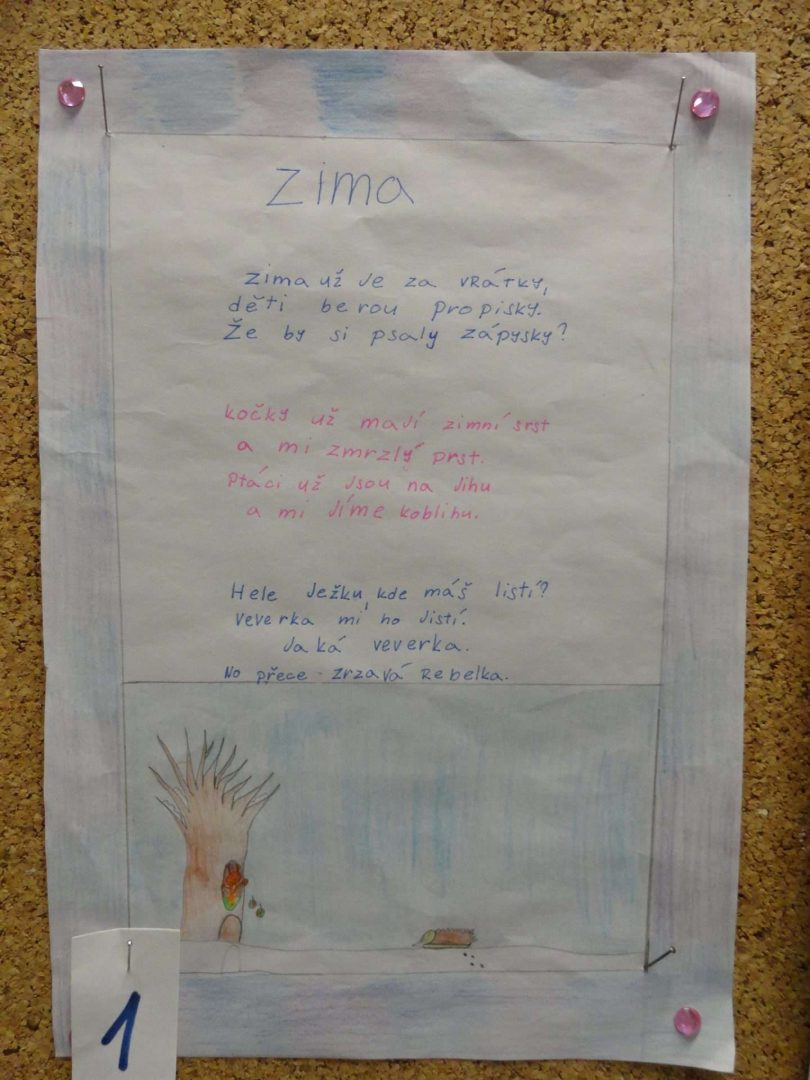 Zima
Zima už je za vrátky,
děti berou propisky.
Že by si psaly zápysky?
kočky už mají zimní srst
a mi zmrzlý prst.
Ptáci už jsou na jihu
a mi jíme koblihu.
Hele Ježku, kde máš listí?
Veverka mi ho jistí.
Jaká veverka.
No přece - zrzavá Rebelka.
1